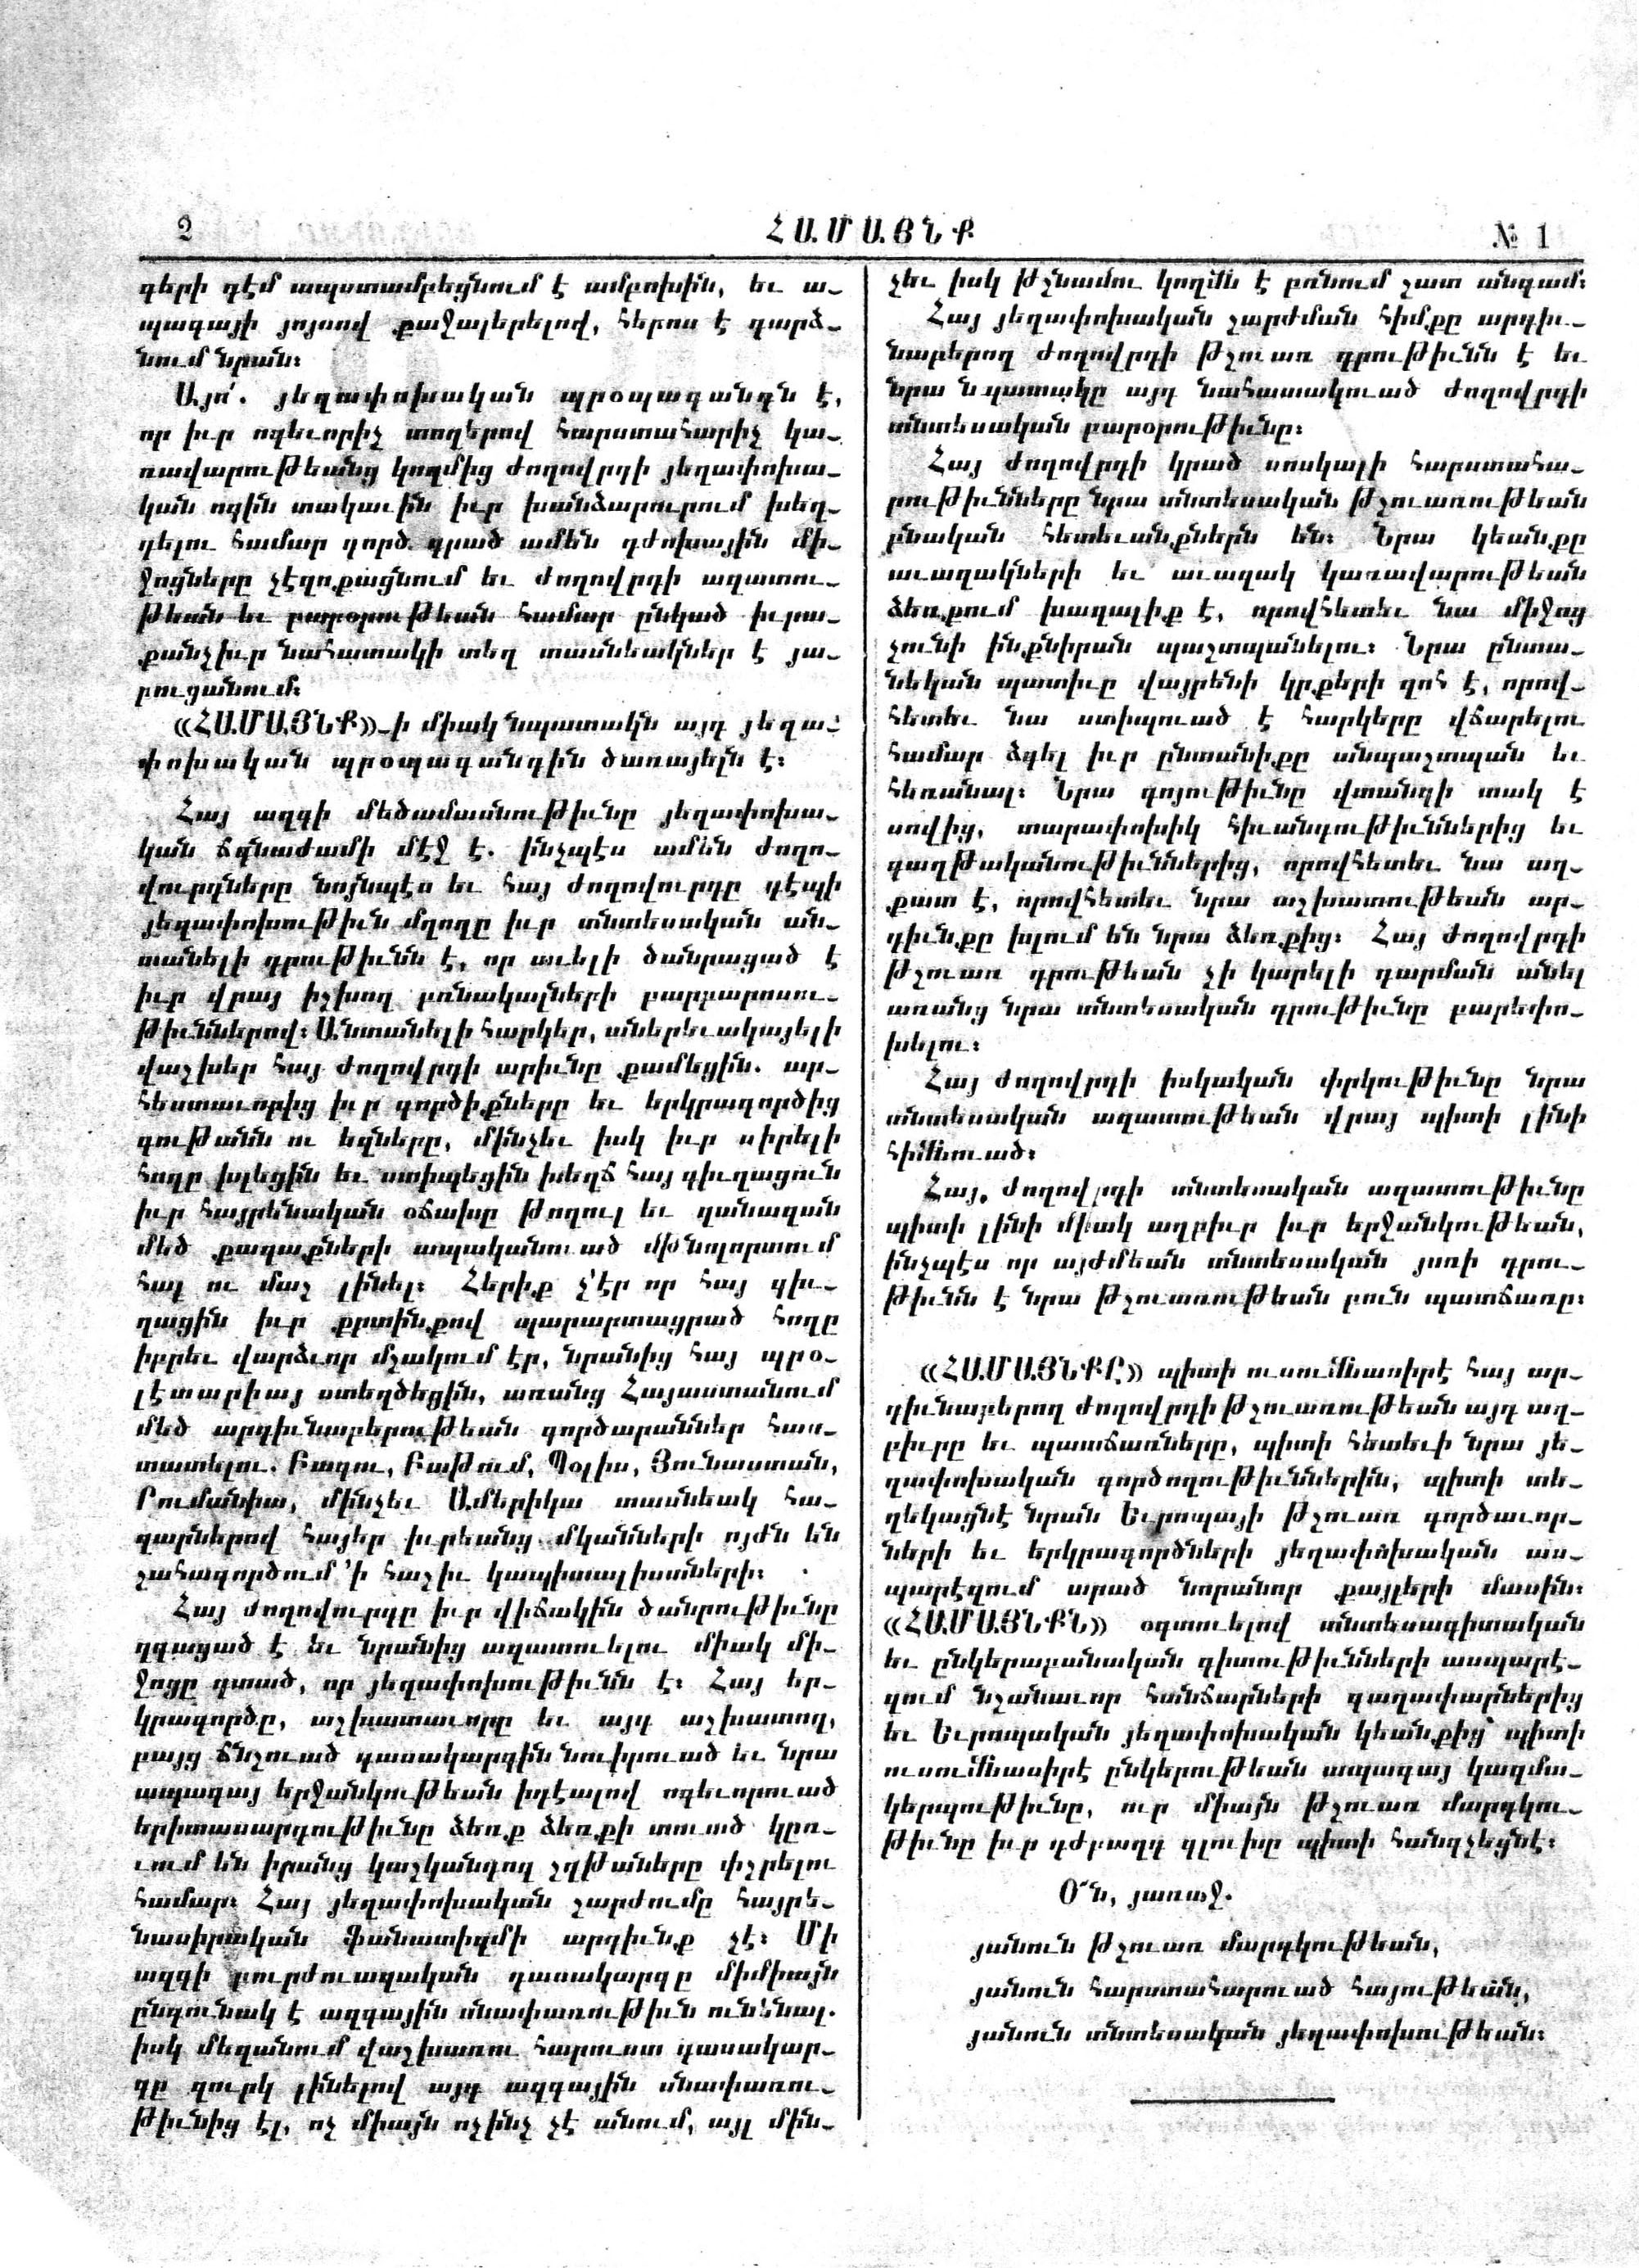 2
ՀԱՄԱՅՆՔ
№ 1
գերի դէմ ապստամբեցնում է ամբոխին, եւ ա-
պագայի յոյսով քաջալերելով, հերոս է դարձ-
նում նրան։
Այո՛. յեղափոխական պրօպագանդն է,
որ իւր ոգեւորիչ տողերով հարստահարիչ կա-
ռավարութեանց կողմից ժողովրդի յեղափոխա-
կան ոգին տակաւին իւր խանձարուրում խեղ-
դելու համար գործ դրած ամեն դժոխային մի-
ջոցները չէզոքացնում եւ ժողովրդի ազատու-
թեան եւ բարօրութեան համար ընկած իւրա-
քանչիւր նահատակի տեղ տասնեակներ է յա-
րուցանում։
«ՀԱՄԱՅՆՔ»-ի միակ նպատակն այդ յեղա-
փոխական պրօպագանդին ծառայելն է։
Հայ ազգի մեծամասնութիւնը յեղափոխա-
կան ճգնաժամի մէջ է. ինչպէս ամեն ժողո-
վուրդները նոյնպէս եւ հայ ժողովուրդը դէպի
յեղափոխութիւն մղողը իւր տնտեսական ան-
տանելի դրութիւնն է, որ աւելի ծանրացած է
իւր վրայ իշխող բռնակալների բարբարոսու-
թիւններով։ Անտանելի հարկեր, աներեւակայելի
վաշխեր հայ ժողովրդի արիւնը քամեցին. ար-
հեստաւորից իւր գործիքները եւ երկրագործից
գութանն ու եզները, մինչեւ իսկ իւր սիրելի
հողը խլեցին եւ ստիպեցին խեղճ հայ գիւղացուն
իւր հայրենական օճախը թողուլ եւ զանազան
մեծ քաղաքների ապականուած մթնոլորտում
հալ ու մաշ լինել։ Հերիք չ՚էր որ հայ գիւ-
ղացին իւր քրտինքով պարարտացրած հողը
իբրեւ վարձւոր մշակում էր, նրանից հայ պրօ-
լէտարիայ ստեղծեցին, առանց Հայաստանում
մեծ արդիւնաբերութեան գործարաններ հաս-
տատելու. Բագու, Բաթում, Պօլիս, Յունաստան,
Րումանիա, մինչեւ Ամերիկա տասնեակ հա-
զարներով հայեր իւրեանց մկանների ոյժն են
շահագործում ՚ի հաշիւ կապիտալիստների։
Հայ ժողովուրդը իւր վիճակին ծանրութիւնը
զգացած է եւ նրանից ազատուելու միակ մի-
ջոցը գտած, որ յեղափոխութիւնն է։ Հայ եր-
կրագործը, աշխատաւորը եւ այդ աշխատող,
բայց ճնշուած դասակարգին նուիրուած եւ նրա
ապագայ երջանկութեան իդէալով ոգեւորուած
երիտասարդութիւնը ձեռք ձեռքի տուած կըռ-
ւում են իրանց կաշկանդող շղթաները փշրելու
համար։ Հայ յեղափոխական շարժումը հայրե-
նասիրական ֆանատիզմի արդիւնք չէ։ Մի
ազգի բուրժուազական դասակարգը միմիայն
ընդունակ է ազգային մնափառութիւն ունենալ.
իսկ մեզանում վաշխառու հարուստ դասակար-
գը զուրկ լինելով այդ ազգային մնափառու-
թիւնից էլ, ոչ միայն ոչինչ չէ անում, այլ մին-
չեւ իսկ թշնամու կողմն է բռնում շատ անգամ։
Հայ յեղափոխական շարժման հիմքը արդիւ-
նաբերող ժողովրդի թշուառ դրութիւնն է եւ
նրա նպատակը այդ նահատակուած ժողովրդի
տնտեսական բարօրութիւնը։
Հայ ժողովրդի կրած սոսկալի հարստահա-
րութիւնները նրա տնտեսական թշուառութեան
բնական հետեւանքներն են։ Նրա կեանքը
աւազակների եւ աւազակ կառավարութեան
ձեռքում խաղալիք է, որովհետեւ նա միջոց
չունի ինքնիրան պաշտպանելու։ Նրա ընտա-
նեկան պատիւը վայրենի կրքերի զոհ է, որով-
հետեւ նա ստիպուած է հարկերը վճարելու
համար ձգել իւր ընտանիքը անպաշտպան եւ
հեռանալ։ Նրա գոյութիւնը վտանգի տակ է
սովից, տարափոխիկ հիւանդութիւններից եւ
գաղթականութիւններից, որովհետեւ նա աղ-
քատ է, որովհետեւ նրա աշխատութեան ար-
դիւնքը խլում են նրա ձեռքից։ Հայ ժողովրդի
թշուառ դրութեան չի կարելի դարման անել
առանց նրա տնտեսական դրութիւնը բարեփո-
խելու։
Հայ ժողովրդի իսկական փրկութիւնը նրա
տնտեսական ազատութեան վրայ պիտի լինի
հիմնուած։
Հայ ժողովրդի տնտեսական ազատութիւնը
պիտի լինի միակ աղբիւր իւր երջանկութեան,
ինչպէս որ այժմեան տնտեսական յոռի դրու-
թիւնն է նրա թշուառութեան բուն պատճառը։
«ՀԱՄԱՅՆՔԸ» պիտի ուսումնասիրէ հայ ար-
դիւնաբերող ժողովրդի թշուառութեան այդ աղ-
բիւրը եւ պատճառները, պիտի հետեւի նրա յե-
ղափոխական գործողութիւններին, պիտի տե-
ղեկացնէ նրան Եւրոպայի թշուառ գործաւոր-
ների եւ երկրագործների յեղափոխական աս-
պարէզում արած նորանոր քայլերի մասին։
«ՀԱՄԱՅՆՔՆ» օգտուելով տնտեսագիտական
եւ ընկերաբանական գիտութիւնների ասպարէ-
զում նշանաւոր հանճարների գաղափարներից
եւ Եւրոպական յեղափոխական կեանքից՝ պիտի
ուսումնասիրէ ընկերութեան ապագայ կազմա-
կերպութիւնը, ուր միայն թշուառ մարդկու-
թիւնը իւր դժբաղդ գլուխը պիտի հանգչեցնէ։
Օ՜ն, յառաջ.
յանուն թշուառ մարդկութեան,
յանուն հարստահարուած հայութեան,
յանուն տնտեսական յեղափոխութեան։